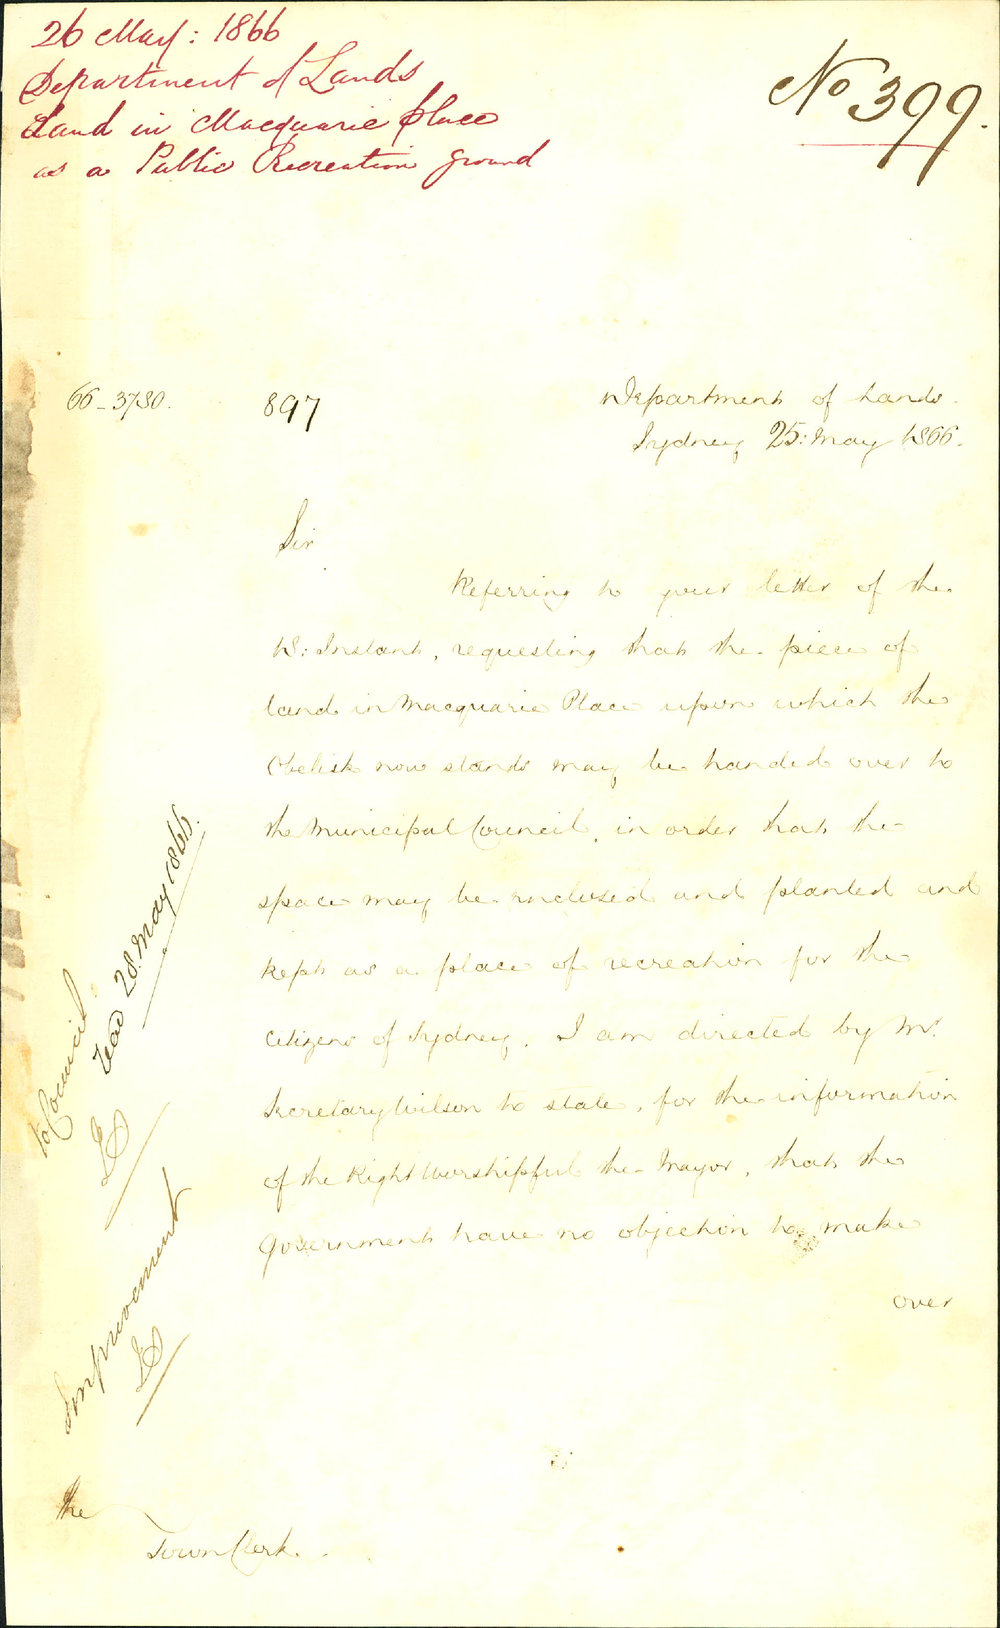 26 May: 1866
Department of Lands
Land in Macquarie place
as a Public Recreation ground
No 399.
66-3730.
897
Department of Lands.
Sydney 25: May 1866.
Sir
Referring to your letter of the
Instant, requesting that the piece of
land in Macquarie Place upon which the
Obelisk now stands may be handed over to
the Municipal Council, in order that the
space may be inclosed and planted and
kept as a place of recreation for the
Citizens of Sydney, I am directed by Mr.
Secretary Wilson to state, for the information
of the Right Worshipful the Mayor, that the
Government have no objection to make
over
to Council
read 28. May 1866.
Improvement
The
Town Clerk.